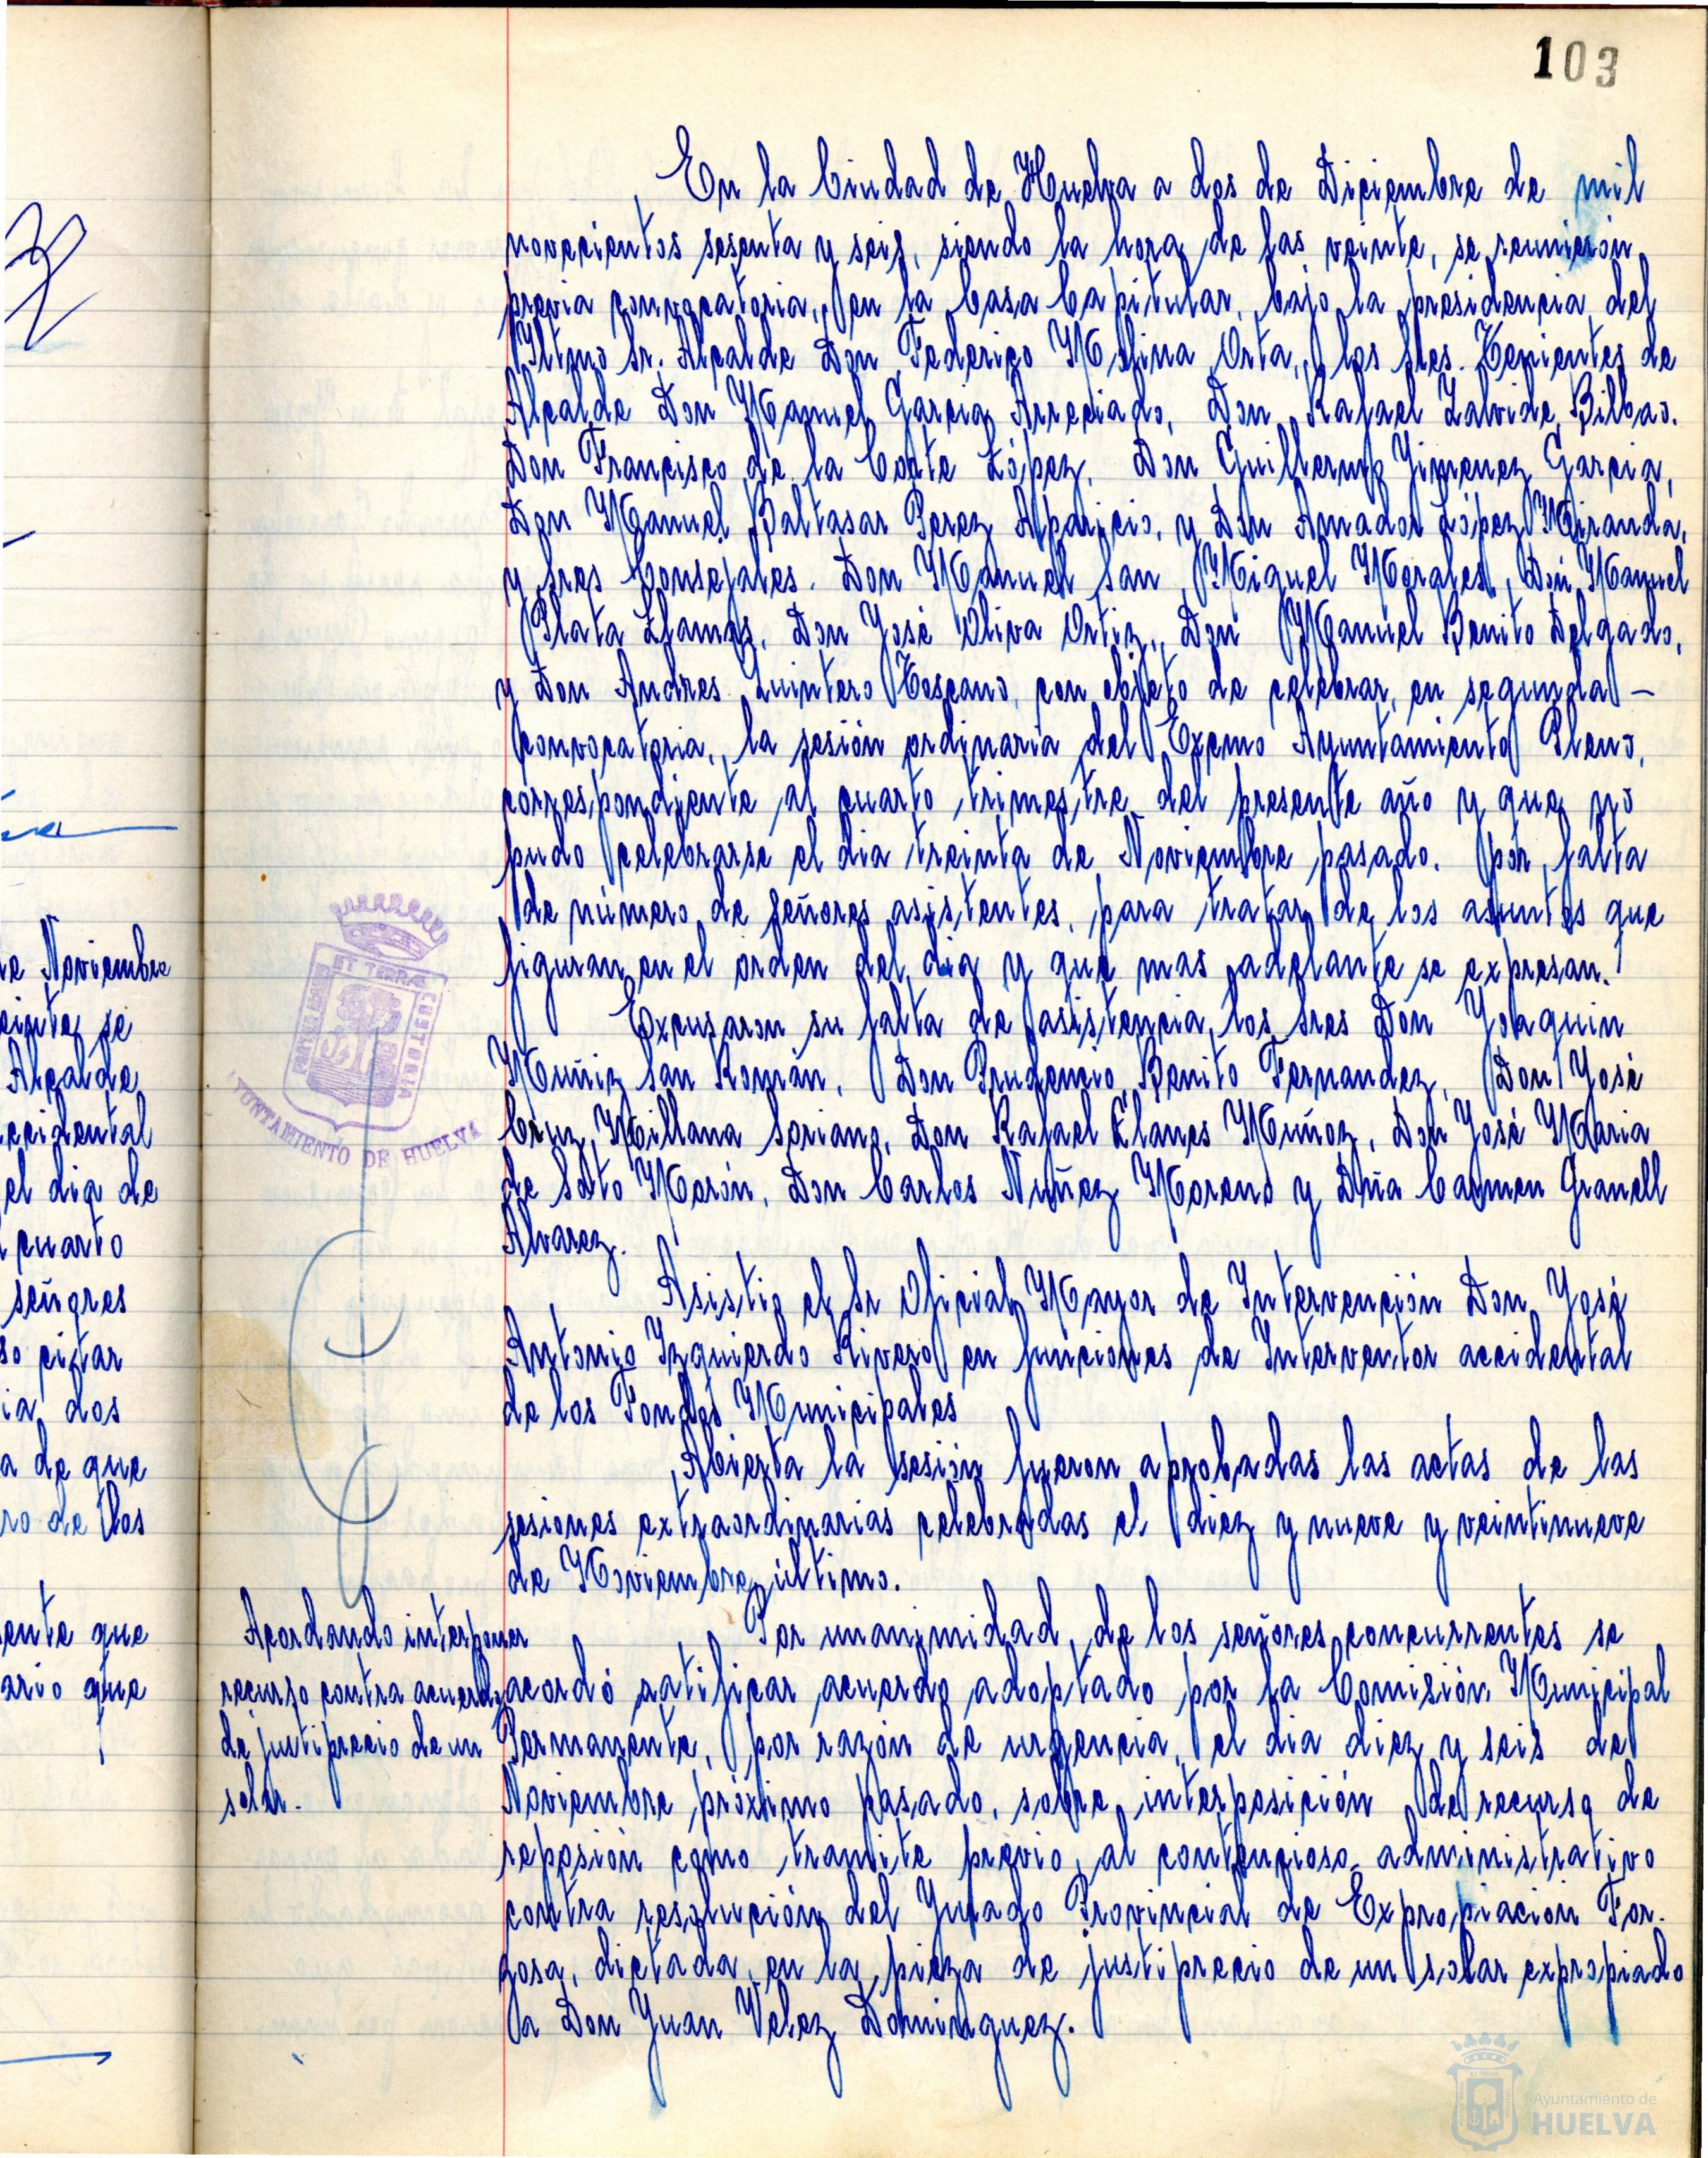 103
En la Ciudad de Huelva a dos de Diciembre de mil
novecientos sesenta y seis, siendo la hora de las veinte, se reunieron,
previa convocatoria, en la Casa Capitular, bajo la presidencia del
Iltmo Sr. Alcalde Don Federico Molina Orta, los Sres. Tenientes de
Alcalde Don Manuel Garcia Arreciado, Don Rafael Zalvide Bilbao.
Don Francisco de la Corte López, Don Guillermo Jimenez Garcia,
Don Manuel Baltasar Perez Aparicio, y Don Amador López Miranda,
y sres Consejales. Don Manuel San Miguel Morales, Don Manuel
Plata Llamas, Don José Oliva Ortiz, Don Manuel Benito Delgado,
y Don Andres Quintero Toscano, con objeto de celebrar, en segunda -
convocatoria, la sesión ordinaria del Excmo Ayuntamiento Pleno,
correspondiente al cuarto trimestre del presente año y que no
pudo celebrarse el dia treinta de Noviembre pasado. por falta
de número de señores asistentes, para tratar de los asuntos que
figuran en el orden del dia y que mas adelante se expresan.
Excusaron su falta de asistencia los sres Don Joaquin
Muñiz San Román, Don Prudencio Benito Fernandez, Don José
Cruz Millana Soriano, Don Rafael Llanes Muñoz, Don José Maria
de Soto Morón, Don Carlos Nuñez Moreno y Dña Carmen Granell
Alvarez.
Asistio el Sr Oficial Mayor de Intervención Don José
Antonio Izquierdo Rivero en funciones de Interventor accidental
de los Fondos Municipales
Abierta la sesión fueron aprobadas las actas de las
sesiones extraordinarias celebradas el diez y nueve y veintinueve
de Noviembre último.
Acordando interponer
recurso contra acuerdo
de justiprecio de un
solar.
Por unanimidad de los señores concurrentes se
acordó ratificar acuerdo adoptado por la Comisión Municipal
Permanente, por razón de urgencia, el dia diez y seis de
Noviembre próximo pasado, sobre interposición de recurso de
reposión como tramite previo al contencioso administrativo
contra resolución del Jurado Provincial de Expropiación For-
zosa, dictada en la pieza de justiprecio de un solar expropiado
a Don Juan Vélez Dominguez.
de Noviembre
se
Alcalde
accidental
el dia de
cuarto
señores
citar
dos
de que
de los
que
que
ET TERRÆ
CUSTODIA
PORTUS MARIS
AYUNTAMIENTO DE HUELVA
Ayuntamiento de
HUELVA